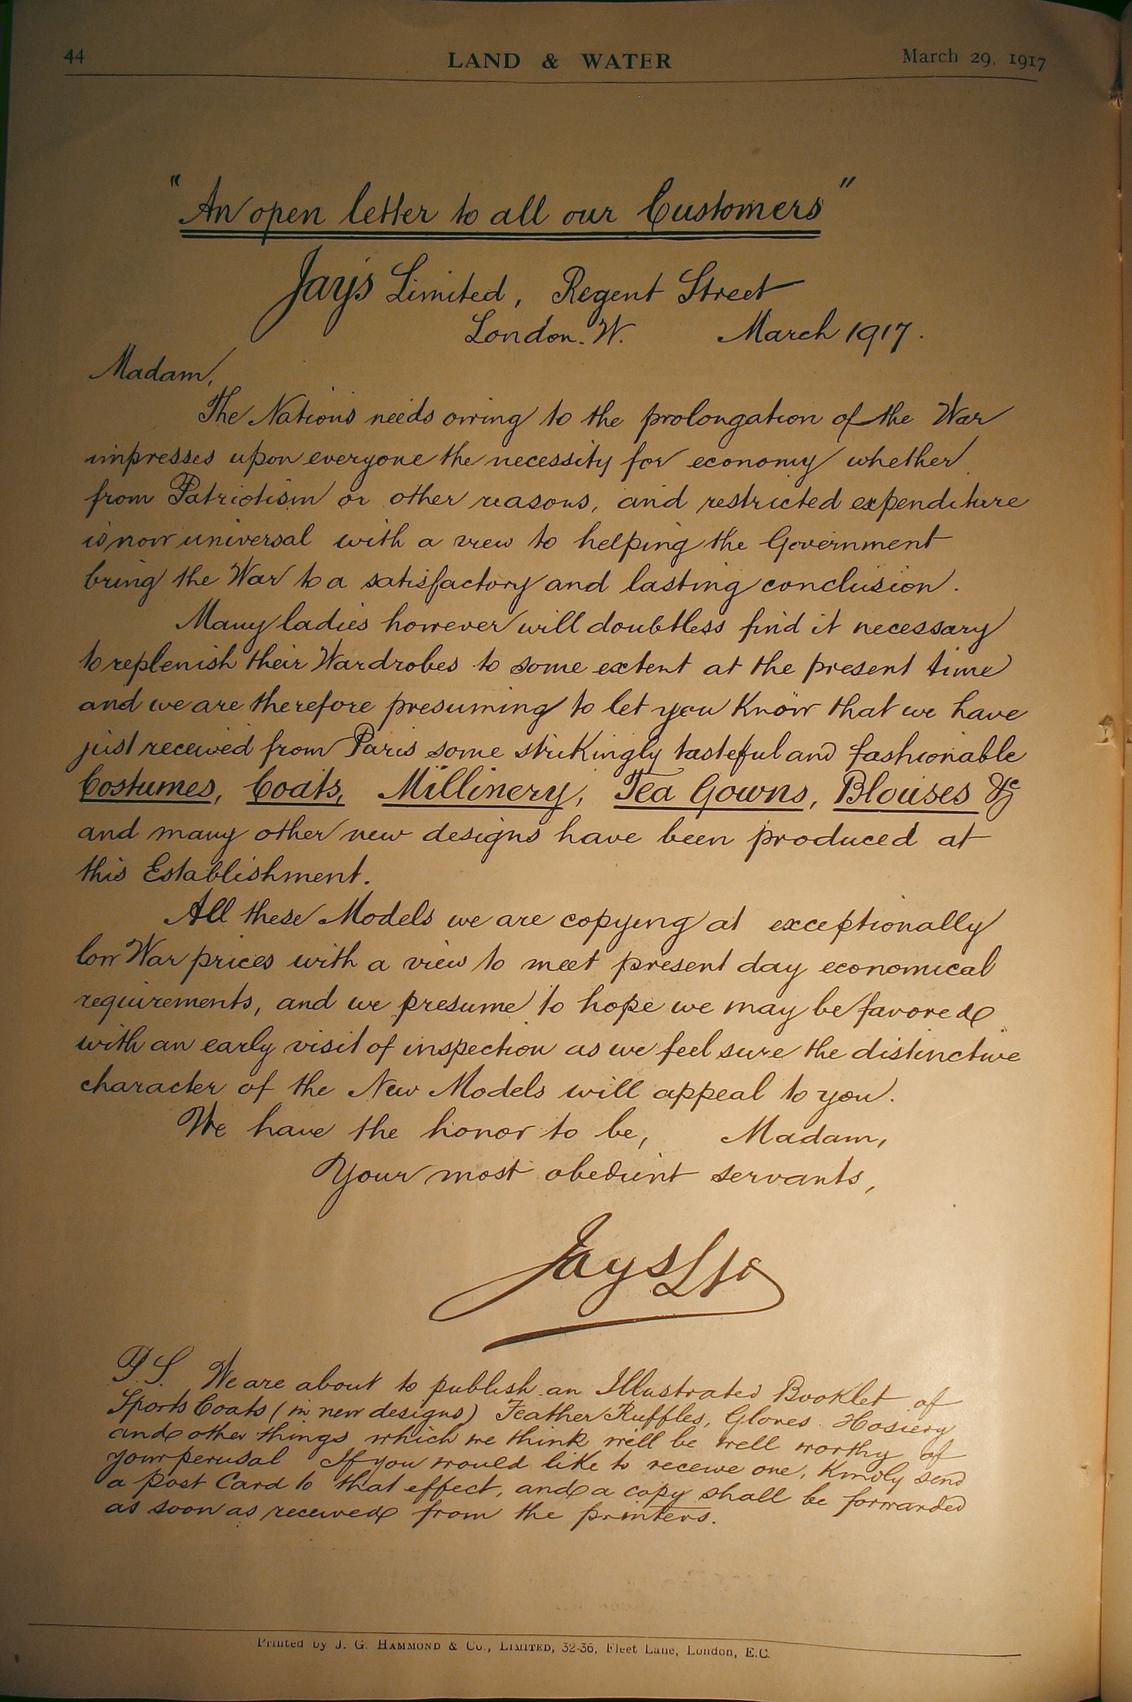 44 LAND & WATER March 29, 1917
"An open letter to all our Customers"
Jay's Limited, Regent Street
London. W. March 1917.
Madam,
The Nation's needs owing to the prolongation of the War
impresses upon everyone the necessity for economy whether
from Patriotism or other reasons, and restricted expenditure
is now universal with a view to helping the Government
bring the War to a satisfactory and lasting conclusion.
Many ladies however will doubtless find it necessary
to replenish their Wardrobes to some extent at the present time
and we are therefore presuming to let you Know that we have
just received from Paris some strikingly tasteful and fashionable
Costumes, Coats, Millinery, Tea Gowns, Blouses &c
and many other new designs have been produced at
this Establishment.
All these Models we are copying at exceptionally
low War prices with a view to meet present day economical
requirements, and we presume to hope we may be favored
with an early visit of inspection as we feel sure the distinctive
character of the New Models will appeal to you.
We have the honor to be, Madam,
Your most obedient servants,
Jays Ltd
P.S. We are about to publish an Illustrated Booklet of
Sports Coats (in new designs) Feather Ruffles, Gloves Hosiery
and other things which we think will be well worthy of
your perusal If you would like to receive one, Kindly send
a post Card to that effect, and a copy shall be forwarded
as soon as received from the printers.
Printed by J. G. HAMMOND & Co., LIMITED, 32-36, Fleet Lane, London, E.C.